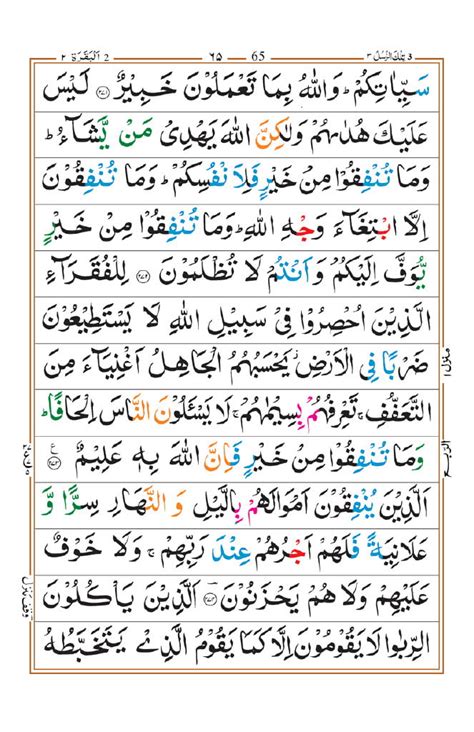 تِلْكَ الرُّسُلُ ٣ 65 ٦٥ اَلْبَقَرَة ٢
سَيِّاٰتِكُمْ ؕ وَاللّٰهُ بِمَا تَعْمَلُوْنَ خَبِيْرٌ ﴿۲۷۱﴾ لَيْسَ
عَلَيْكَ هُدٰىهُمْ وَلٰكِنَّ اللّٰهَ يَهْدِىْ مَنْ يَّشَآءُ ؕ
وَمَا تُنْفِقُوْا مِنْ خَيْرٍ فَلِاَنْفُسِكُمْ ؕ وَمَا تُنْفِقُوْنَ
اِلَّا ابْتِغَآءَ وَجْهِ اللّٰهِ ؕ وَمَا تُنْفِقُوْا مِنْ خَيْرٍ
يُّوَفَّ اِلَيْكُمْ وَاَنْتُمْ لَا تُظْلَمُوْنَ ﴿۲۷۲﴾ لِلْفُقَرَآءِ
الَّذِيْنَ اُحْصِرُوْا فِىْ سَبِيْلِ اللّٰهِ لَا يَسْتَطِيْعُوْنَ
ضَرْبًا فِى الْاَرْضِ ؗ يَحْسَبُهُمُ الْجَاهِلُ اَغْنِيَآءَ مِنَ
التَّعَفُّفِ ۚ تَعْرِفُهُمْ بِسِيْمٰهُمْ ۚ لَا يَسْئَلُوْنَ النَّاسَ اِلْحَافًا ؕ
وَمَا تُنْفِقُوْا مِنْ خَيْرٍ فَاِنَّ اللّٰهَ بِهٖ عَلِيْمٌ ﴿۲۷۳﴾ ع
اَلَّذِيْنَ يُنْفِقُوْنَ اَمْوَالَهُمْ بِالَّيْلِ وَ النَّهَارِ سِرًّا وَّ
عَلَانِيَةً فَلَهُمْ اَجْرُهُمْ عِنْدَ رَبِّهِمْ ۚ وَلَا خَوْفٌ
عَلَيْهِمْ وَلَا هُمْ يَحْزَنُوْنَ ﴿۲۷۴﴾ اَلَّذِيْنَ يَاْكُلُوْنَ
الرِّبٰوا لَا يَقُوْمُوْنَ اِلَّا كَمَا يَقُوْمُ الَّذِىْ يَتَخَبَّطُهُ
منزل ١
الربع